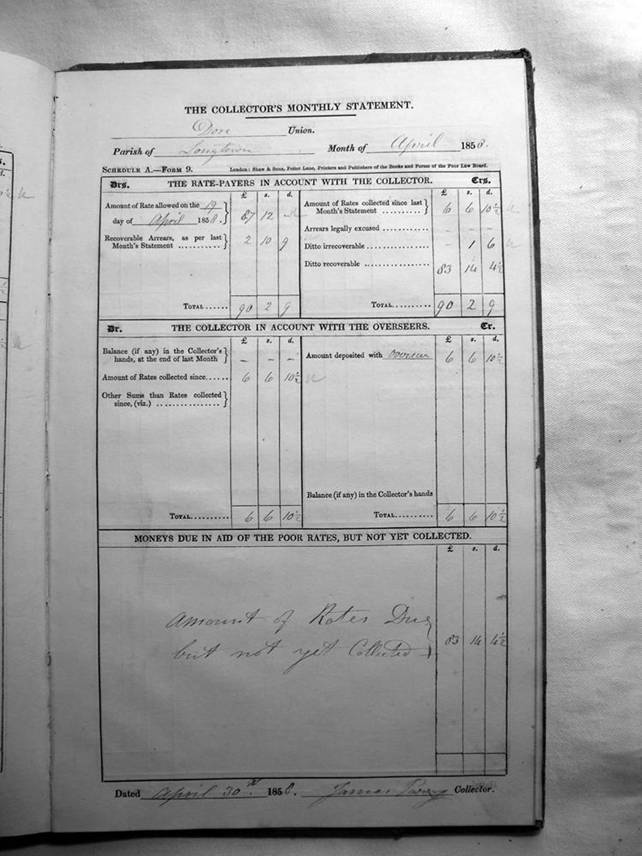 THE COLLECTOR'S MONTHLY STATEMENT.
Dore Union.
Parish of Longtown Month of April 1858.
SCHEDULE A.—FORM 9. London: Shaw & Sons, Fetter Lane, Printers and Publishers of the Books and Forms of the Poor Law Board.
Drs. THE RATE-PAYERS IN ACCOUNT WITH THE COLLECTOR. Crs.
£ s. d. £ s. d.
Amount of Rate allowed on the 19
day of April 1858. } 87 12 -
Recoverable Arrears, as per last
Month's Statement ........... } 2 10 9
Amount of Rates collected since last
Month's Statement .......... } 6 6 10½
Arrears legally excused ............... - - -
Ditto irrecoverable .................. - 1 6
Ditto recoverable .................... 83 14 4½
TOTAL...... 90 2 9 TOTAL.......... 90 2 9
Dr. THE COLLECTOR IN ACCOUNT WITH THE OVERSEERS. Cr.
£ s. d. £ s. d.
Balance (if any) in the Collector's
hands, at the end of last Month } - - -
Amount of Rates collected since...... 6 6 10½
Other Sums than Rates collected
since, (viz.) ................. }
Amount deposited with overseer 6 6 10½
Balance (if any) in the Collector's hands
TOTAL.......... 6 6 10½ TOTAL.......... 6 6 10½
MONEYS DUE IN AID OF THE POOR RATES, BUT NOT YET COLLECTED.
£ s. d.
Amount of Rates Due
but not yet Collected } 83 14 4½
Dated April 30th 1858. James Collector.